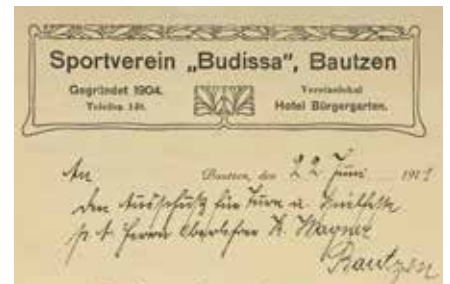 Sportverein „Budissa", Bautzen
Gegründet 1904.
Telefon
Vereinslokal
Hotel Bürgergarten.
An Bautzen, den 22 Juni
den Ausschuß für Turn u.
Herrn Oberlehrer Wagner
Bautzen